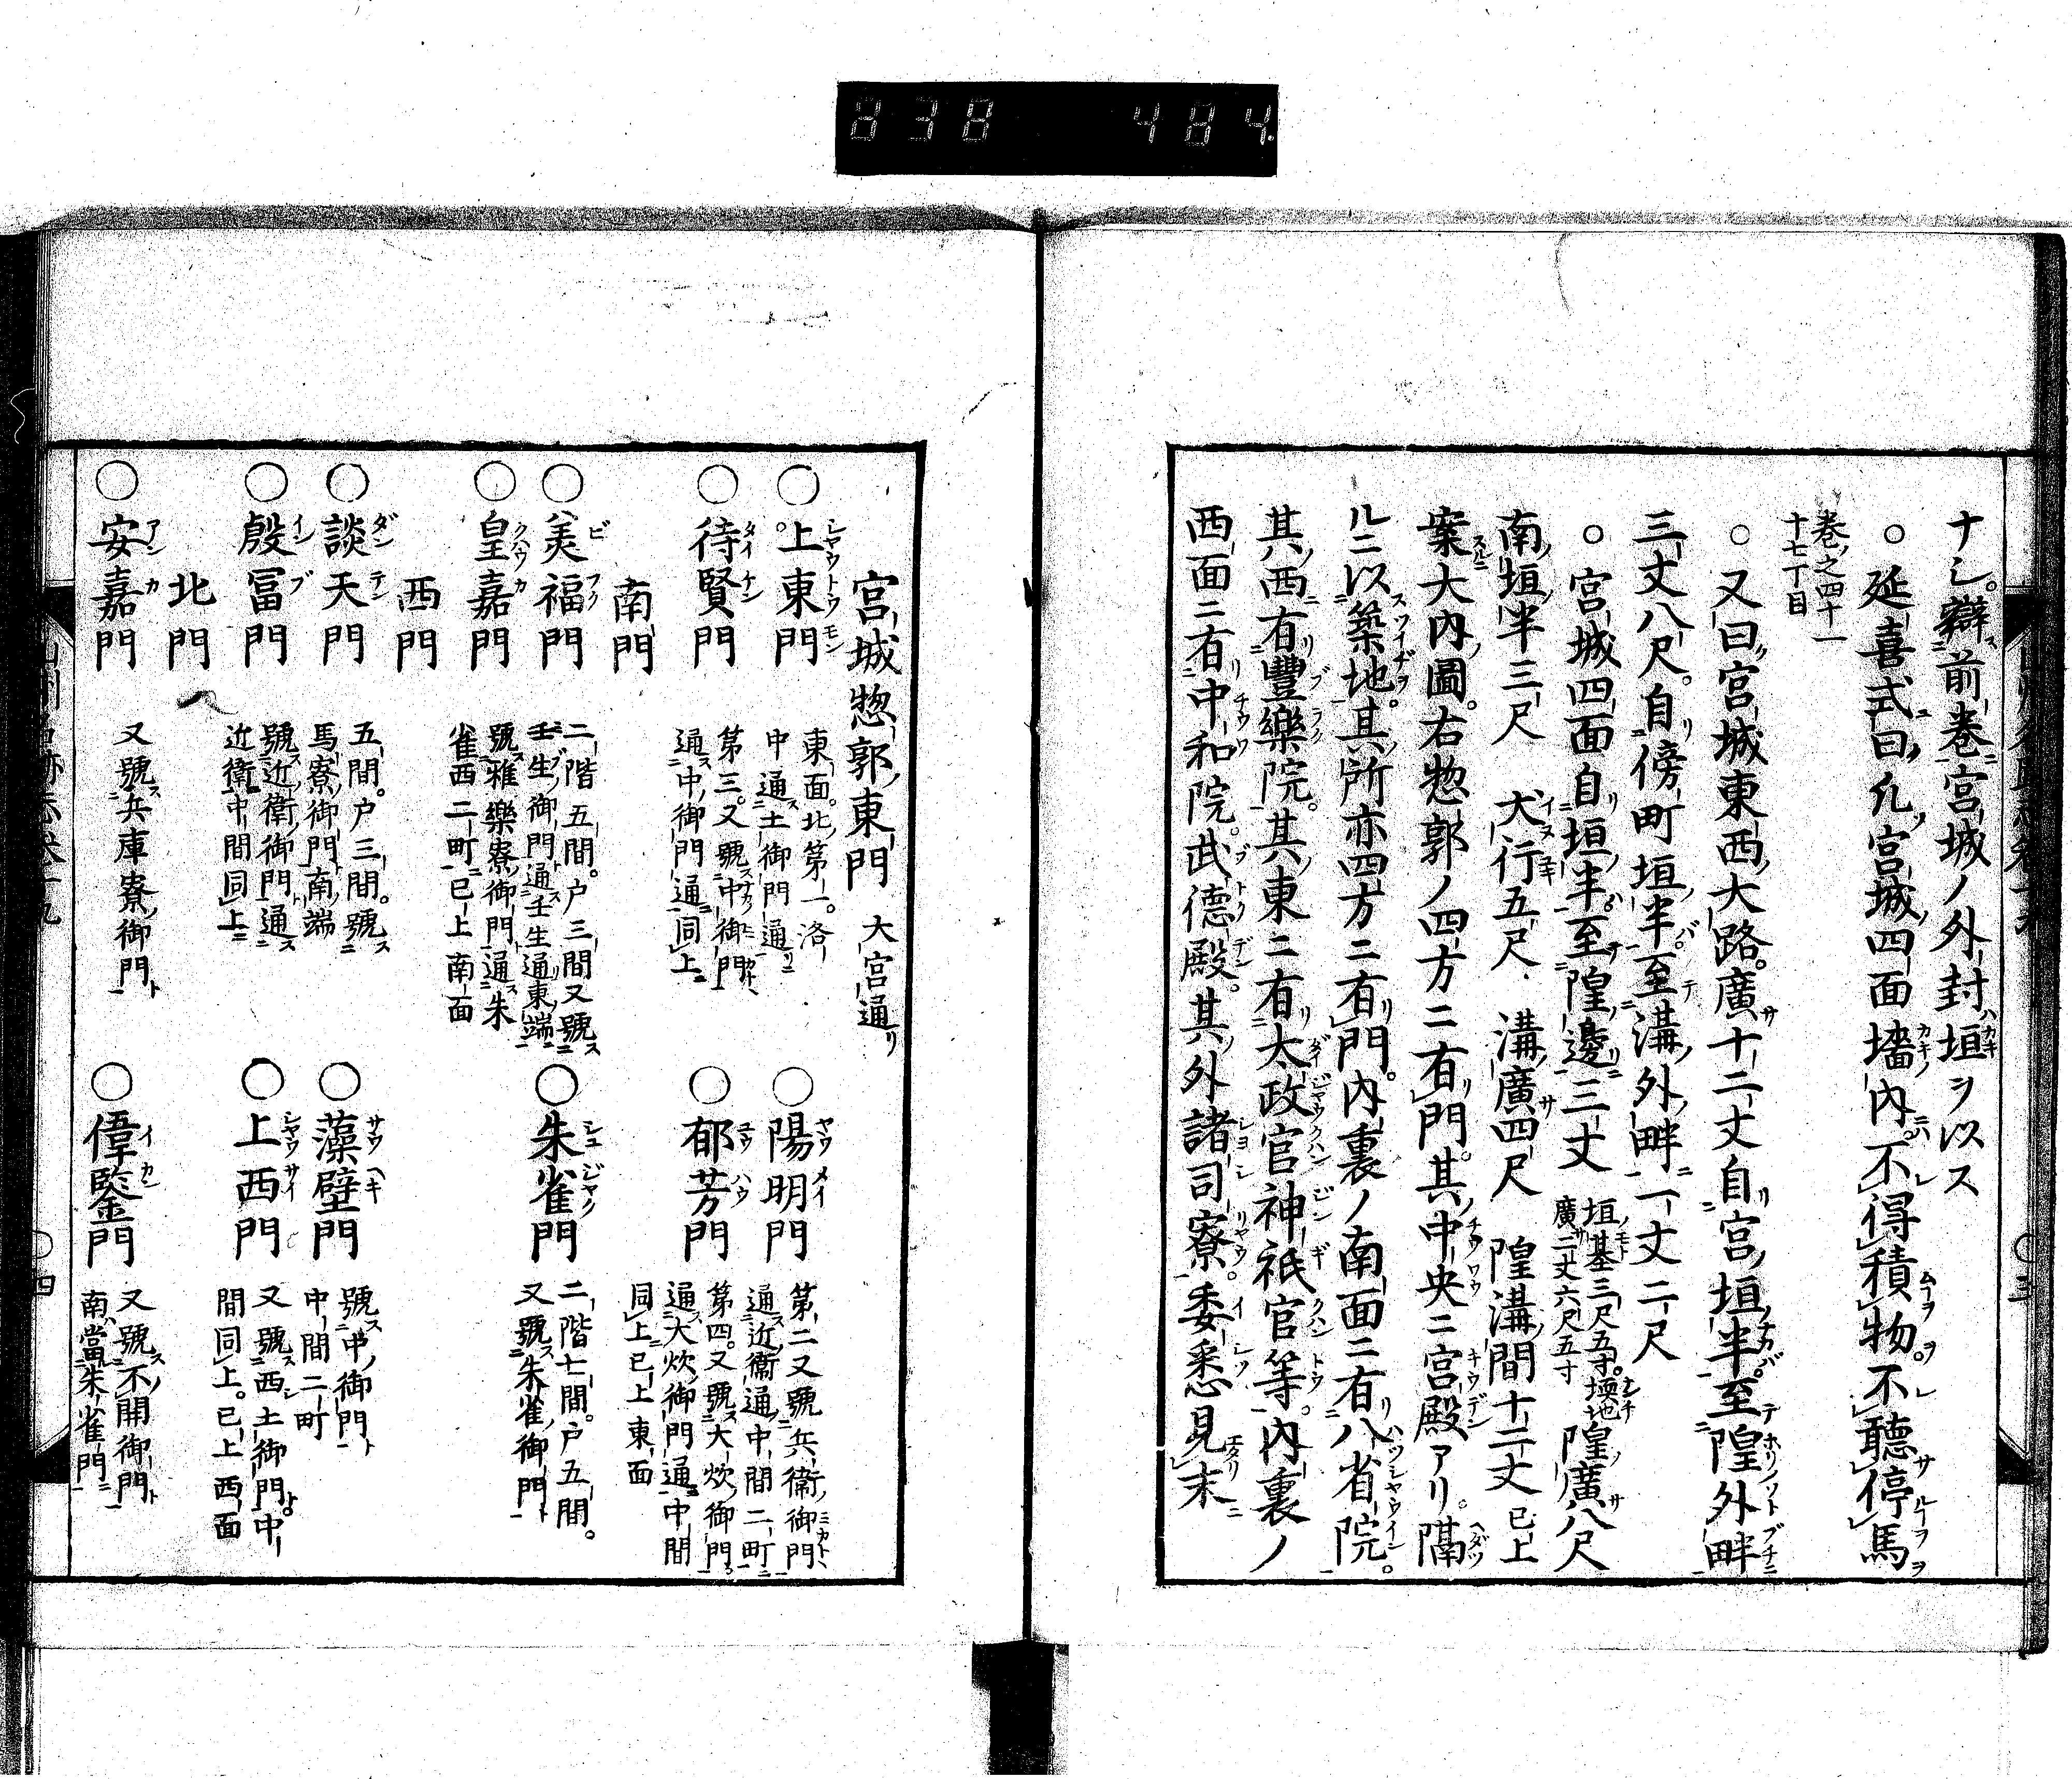 838 484
ナシ。辯前巻宮城ノ外封垣ヲ以ス
○延喜式曰凡宮城四面墻内不得積物。不聽停馬
巻ノ之四十一
十七丁目
○又曰宮城東西大路。廣十二丈自宮垣半至隍外畔
三丈八尺。自傍町垣半至溝外畔一丈二尺
○宮城四面自垣半至隍邊三丈 垣基三尺五寸。壖地廣二丈六尺五寸 隍廣八尺
南垣半三尺 犬行五尺 溝廣四尺 隍溝間十二丈 已上
案大内圖。右惣郭ノ四方ニ有門。其中央ニ宮殿アリ。隔
ルニ以築地。其所亦四方ニ有門。内裏ノ南面ニ有八省院。
其西有豐樂院。其東ニ有太政官神祇官等。内裏ノ
西面ニ有中和院。武德殿。其外諸司寮。委悉見末
宮城惣郭東門 大宮通
○上東門 東面。北第一。洛中通土御門通
○陽明門 第二又號兵衞御門通近衞通中間二町
○待賢門 第三。又號中御門通中御門通同上
○郁芳門 第四。又號大炊御門通大炊御門通中間同上已上東面
南門
○美福門 二階五間。戸三間又號壬生御門通壬生通東端
○朱雀門 二階七間。戸五間。又號朱雀御門
○皇嘉門 號雅樂寮御門通朱雀西二町已上南面
西門
○談天門 五間。戸三間。號馬寮御門南端
○藻壁門 號中御門中間二町
○殷冨門 號近衞御門通近衞中間同上
○上西門 又號西土御門。中間同上。已上西面
北門
○安嘉門 又號兵庫寮御門
○偉鑒門 又號不開御門南當朱雀門
三
四